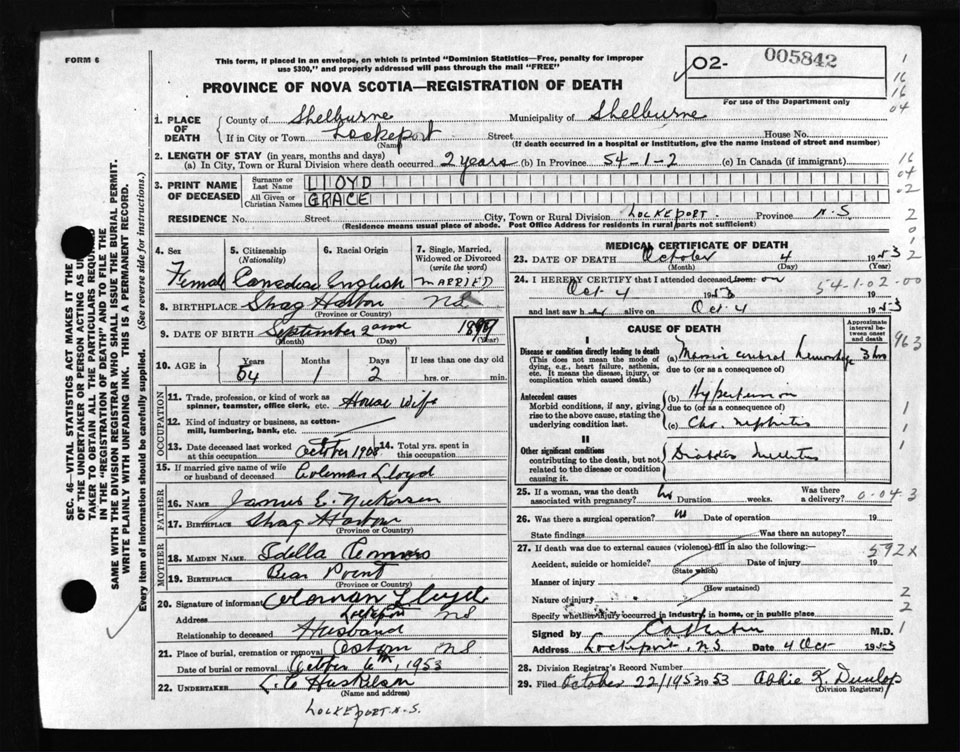 FORM 6
This form, if placed in an envelope, on which is printed "Dominion Statistics—Free, penalty for improper
use $300," and properly addressed will pass through the mail "FREE"
PROVINCE OF NOVA SCOTIA—REGISTRATION OF DEATH
02- 005842
For use of the Department only
1. PLACE OF DEATH
County of Shelburne Municipality of Shelburne
If in City or Town Lockeport Street House No.
(Name) (If death occurred in a hospital or institution, give the name instead of street and number)
2. LENGTH OF STAY (in years, months and days)
(a) In City, Town or Rural Division where death occurred 2 years (b) In Province 54-1-2 (c) In Canada (if immigrant)
3. PRINT NAME OF DECEASED
Surname or Last Name LLOYD
All Given or Christian Names GRACE
RESIDENCE No. Street City, Town or Rural Division LOCKEPORT. Province N.S
(Residence means usual place of abode. Post Office Address for residents in rural parts not sufficient)
4. Sex
Female
5. Citizenship
(Nationality)
Canadian
6. Racial Origin
English
7. Single, Married, Widowed or Divorced
(write the word)
MARRIED
8. BIRTHPLACE Shag Harbor NS
(Province or Country)
9. DATE OF BIRTH September 2nd 1899
(Month) (Day) (Year)
10. AGE in
Years Months Days If less than one day old
54 1 2 hrs. or min.
OCCUPATION
11. Trade, profession, or kind of work as
spinner, teamster, office clerk, etc. House Wife
12. Kind of industry or business, as cotton-
mill, lumbering, bank, etc.
13. Date deceased last worked
at this occupation October 19
14. Total yrs. spent in
this occupation
15. If married give name of wife
or husband of deceased Coleman Lloyd
FATHER
16. NAME James E. Nickerson
17. BIRTHPLACE Shag Harbor
(Province or Country)
MOTHER
18. MAIDEN NAME
19. BIRTHPLACE Bear Point
(Province or Country)
20. Signature of informant Coleman Lloyd
Address Lockeport NS
Relationship to deceased Husband
21. Place of burial, cremation or removal NS
Date of burial or removal October 6th, 1953
22. UNDERTAKER L.C Huskilson
(Name and address)
LOCKEPORT. N.S.
SEC. 46—VITAL STATISTICS ACT MAKES IT THE
OF THE UNDERTAKER OR PERSON ACTING AS
TAKER TO OBTAIN ALL THE PARTICULARS
IN THE "REGISTRATION OF DEATH" AND TO FILE THE
SAME WITH THE DIVISION REGISTRAR WHO SHALL ISSUE THE BURIAL PERMIT.
WRITE PLAINLY WITH UNFADING INK. THIS IS A PERMANENT RECORD.
Every item of information should be carefully supplied. (See reverse side for instructions.)
MEDICAL CERTIFICATE OF DEATH
23. DATE OF DEATH October 4 1953
(Month) (Day) (Year)
24. I HEREBY CERTIFY that I attended deceased from on
Oct 4 1953
54-1-02-00
and last saw h alive on Oct 4 1953
CAUSE OF DEATH
Approximate interval between onset and death
I
Disease or condition directly leading to death
(This does not mean the mode of
dying, e.g., heart failure, asthenia,
etc. It means the disease, injury, or
complication which caused death.)
(a) Massive cerebral hemorrhage 3 hrs
due to (or as a consequence of)
Antecedent causes
Morbid conditions, if any, giving
rise to the above cause, stating the
underlying condition last.
(b) Hypertension
due to (or as a consequence of)
(c) Chr. nephritis
II
Other significant conditions
contributing to the death, but not
related to the disease or condition
causing it.
Diabetes Mellitus
25. If a woman, was the death
associated with pregnancy? No Duration weeks. Was there
a delivery?
0-04 3
26. Was there a surgical operation? Date of operation 19
State findings Was there an autopsy?
27. If death was due to external causes (violence) fill in also the following:—
592x
Accident, suicide or homicide? Date of injury 19
(State which)
Manner of injury
(How sustained)
Nature of injury
Specify whether injury occurred in industry, in home, or in public place
Signed by M.D.
Address Lockeport, N.S. Date 4 Oct 1953
28. Division Registrar's Record Number
29. Filed October 22/1953 1953 Abbie L. Dunlop
(Division Registrar)
1
16
16
04
16
04
02
2
0
1
2
963
1
1
1
2
2
1